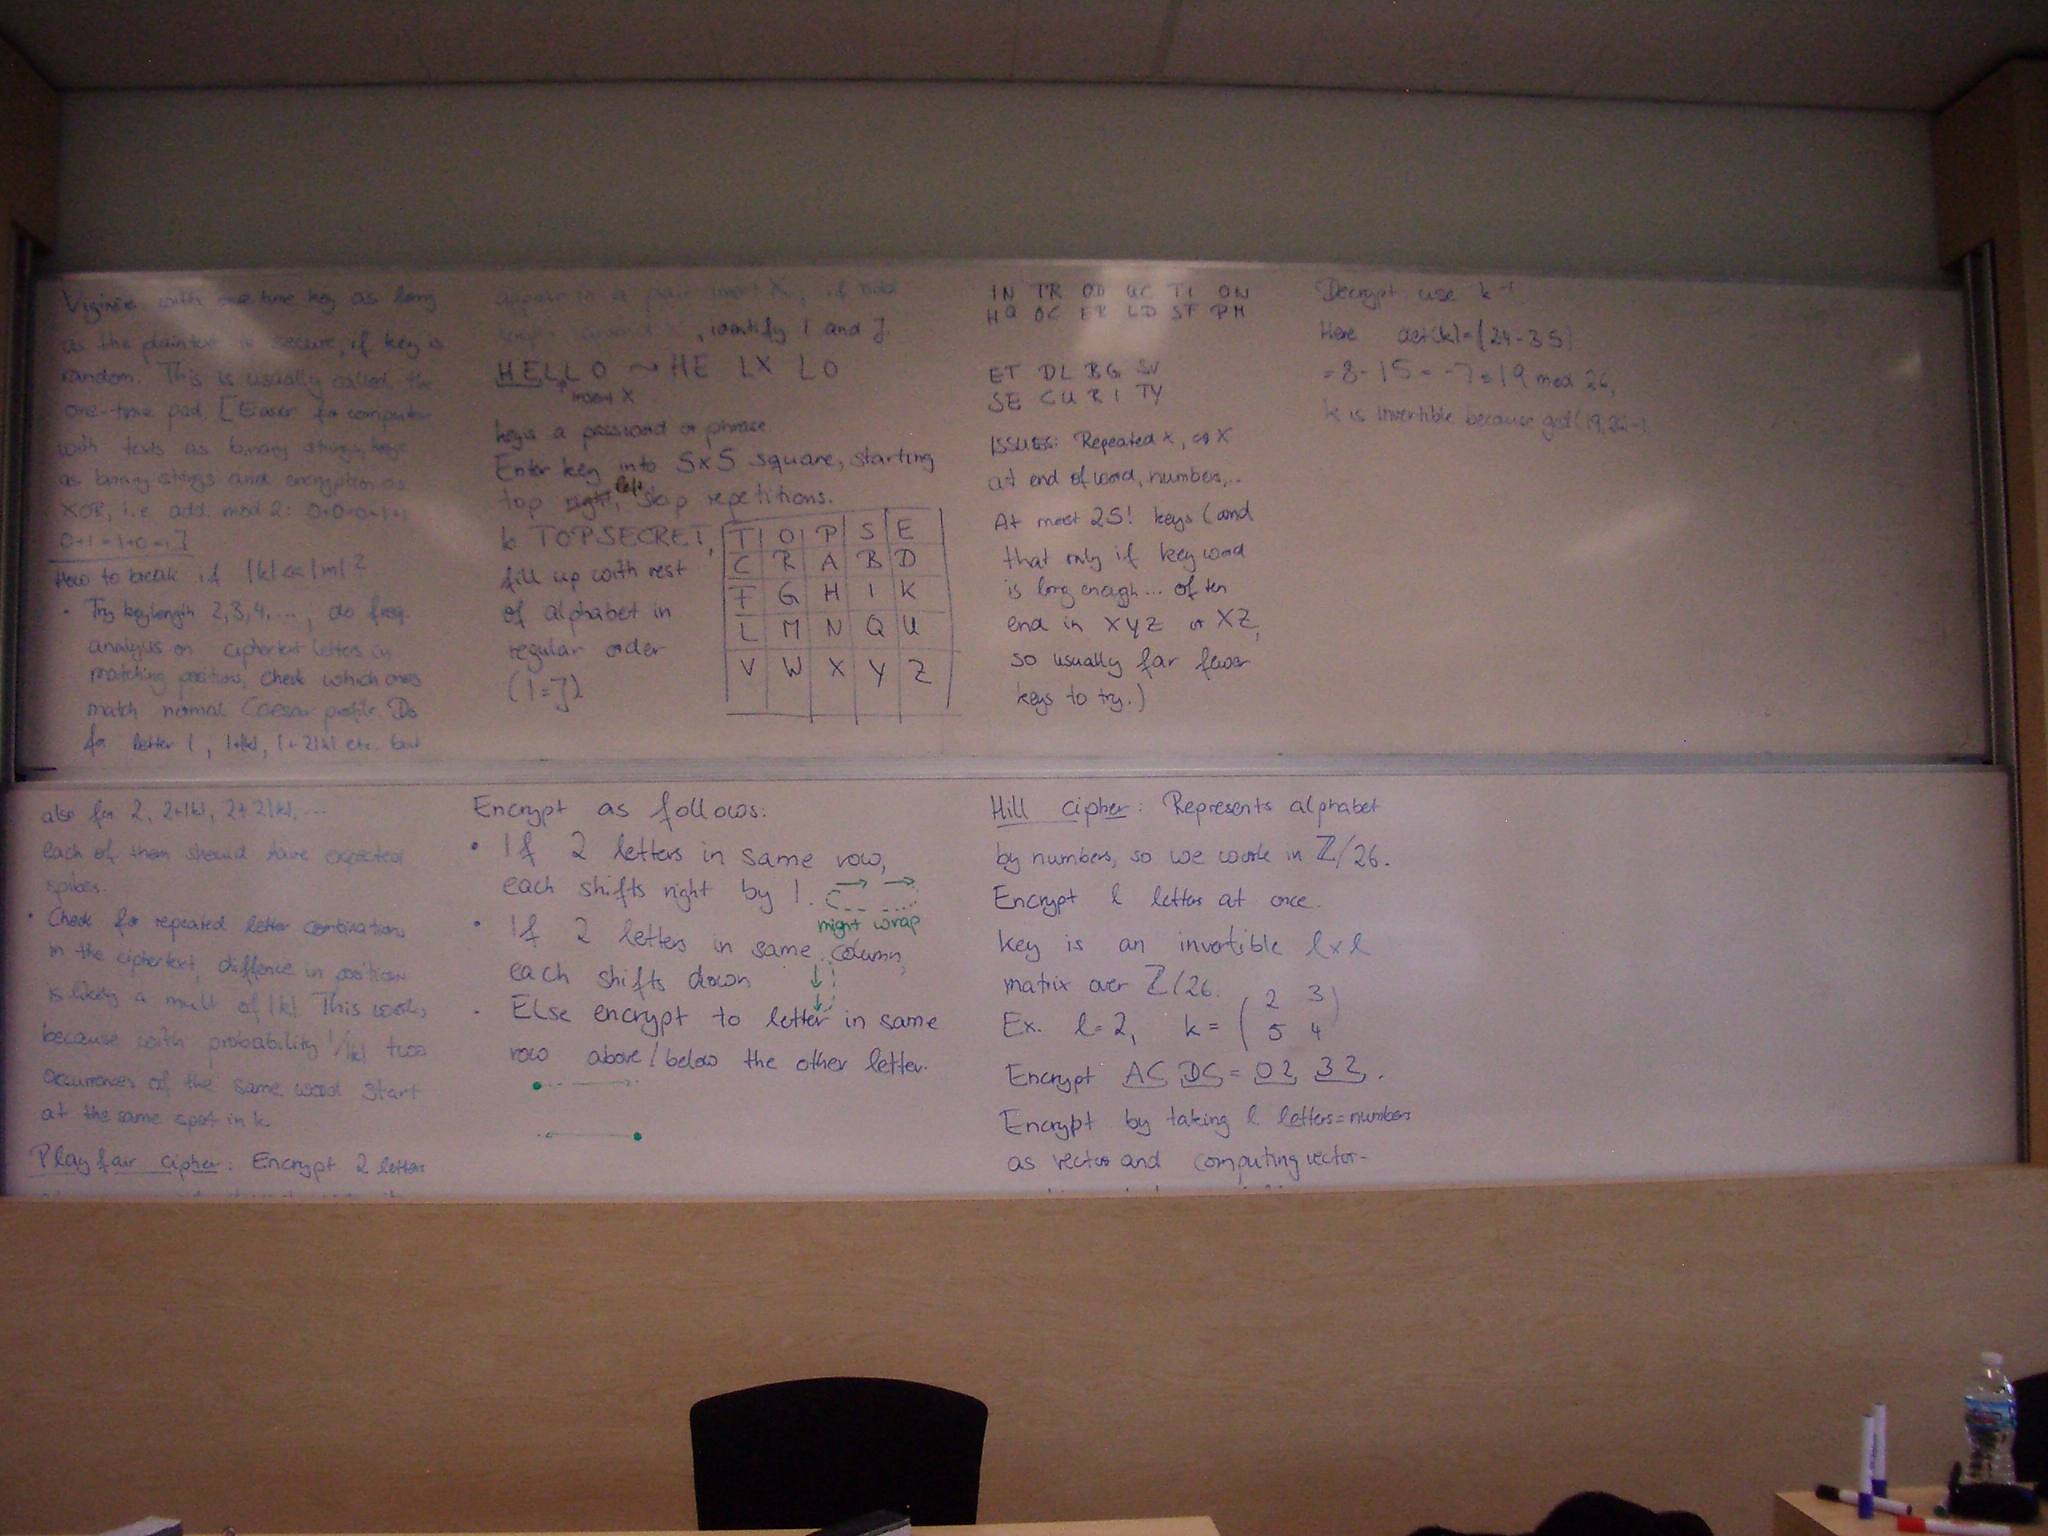 Viginère with one-time key as long
as the plaintext is secure, if key is
random. This is usually called the
one-time pad. [Easier for computer
with texts as binary strings, keys
as binary strings and encryption as
XOR, i.e. add. mod 2: 0+0=0=1+1
0+1=1+0=1]
How to break if |k| << |m| ?
• Try keylength 2,3,4,..., do freq.
analysis on ciphertext letters in
matching positions; check which ones
match normal Caesar profile. Do
for letter 1, 1+|k|, 1+2|k| etc. but
also for 2, 2+|k|, 2+2|k|, ...
each of them should have expected
spikes.
• Check for repeated letter combinations
in the ciphertext, diffence in position
is likely a mult of |k| This works
because with probability 1/|k| two
occurrences of the same word start
at the same spot in k.
Playfair cipher: Encrypt 2 letters
appear in a pair insert X, if odd
, identify I and J.
HELLO ~ HE LX LO
insert X
key is a password or phrase.
Enter key into 5x5 square, starting
top right, left skip repetitions.
k TOPSECRET,
fill up with rest
of alphabet in
regular order
(I=J)
T O P S E
C R A B D
F G H I K
L M N Q U
V W X Y Z
Encrypt as follows:
• If 2 letters in same row,
each shifts right by 1.
might wrap
• If 2 letters in same column,
each shifts down
• Else encrypt to letter in same
row above/below the other letter.
IN TR OD UC TI ON
HQ OC ER LD SF PM
ET DL BG SV
SE CU RI TY
ISSUES: Repeated X, or X
at end of word, numbers,..
At most 25! keys (and
that only if key word
is long enough... often
end in XYZ or XZ,
so usually far fewer
keys to try.)
Hill cipher: Represents alphabet
by numbers, so we work in ℤ/26.
Encrypt l letters at once.
key is an invertible l×l
matrix over ℤ/26.
Ex. l=2, k = (2 3
5 4)
Encrypt AC DC = 02 32.
Encrypt by taking l letters=numbers
as vector and computing vector-
Decrypt use k⁻¹
Here det(k)=(2·4-3·5)
=8-15=-7≡19 mod 26,
k is invertible because gcd(19,26)=1